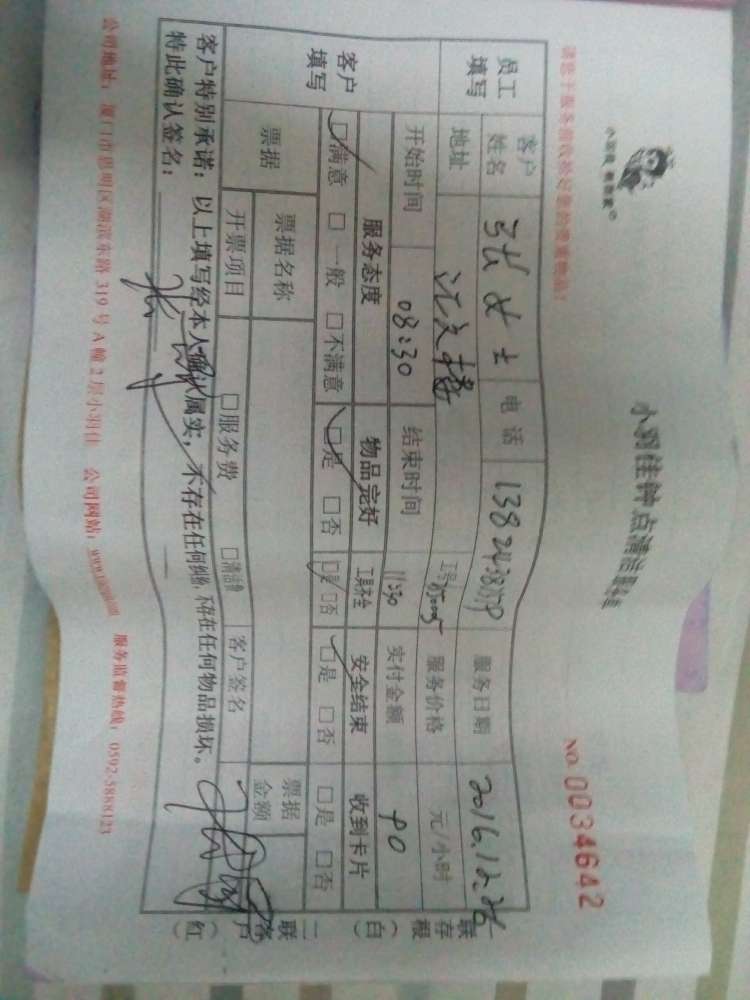 小羽佳 家政®
小羽佳钟点清洁服务单
NO. 0034642
请您于服务前收检好您的贵重物品!
员工填写 客户姓名 张女士 电话 服务日期 2016.12.26
地址 汇文楼 工号 服务价格 元/小时
开始时间 08:30 结束时间 11:30 实付金额 90
客户填写 服务态度 物品完好 工具齐全 安全结束 收到卡片
□满意 □一般 □不满意 □是 □否 □是 □否 □是 □否 □是 □否
票据 票据名称 客户签名 票据金额
开票项目 □服务费 □清洁费
客户特别承诺:以上填写经本人确认属实,不存在任何纠纷,不存在任何物品损坏。
特此确认签名:
公司地址:厦门市思明区湖滨东路319号A幢2层小羽佳 公司网站: 服务监督热线:0592-5888123
存根联(白)
客户联(红)